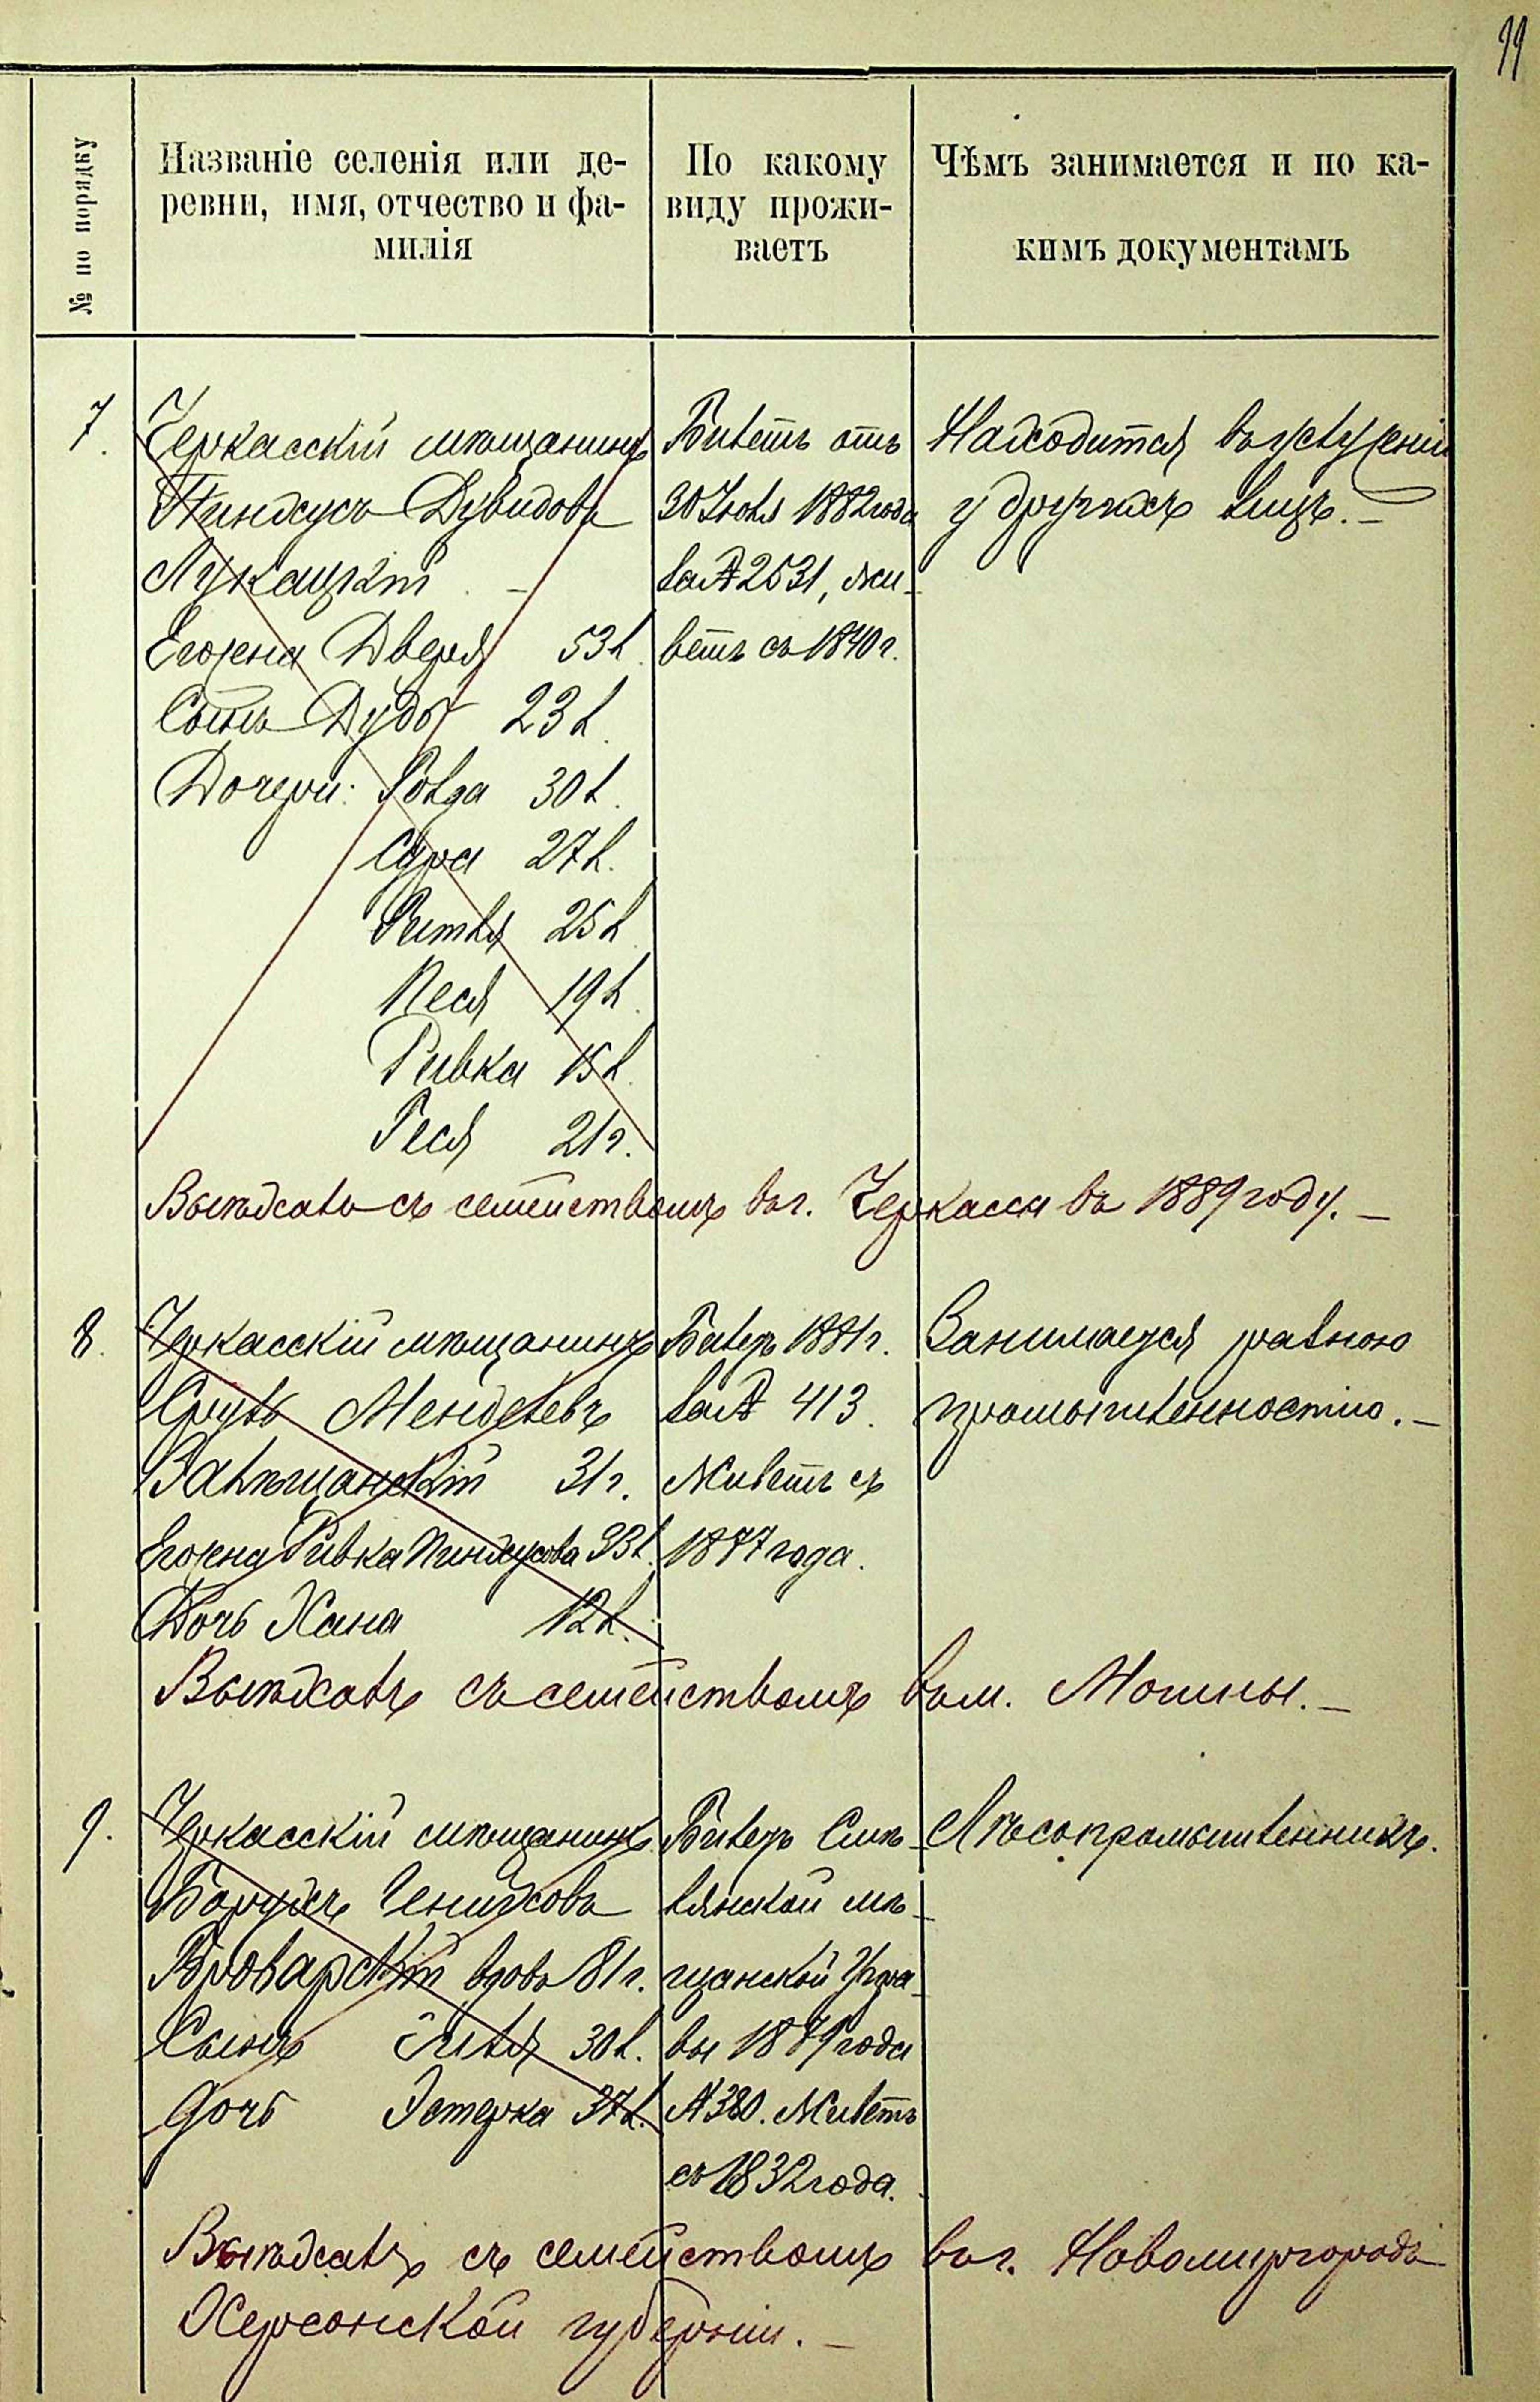 99
№ по порядку
Названіе селенія или де-
ревни, имя, отчество и фа-
милія
По какому
виду прожи-
ваетъ
Чѣмъ занимается и по ка-
кимъ документамъ
7.
Черкасскій мѣщанинъ
Пинхусъ Дувидовъ
Лукацкій –
Его жена Двейра 53 л.
Сынъ Дудь 23 л.
Дочери: Голда 30 л.
Сура 27 л.
Ритля 25 л.
Песя 19 л.
Ривка 15 л.
Геся 21 г.
Билетъ отъ
30 Іюля 1882 года
за № 2531, жи-
ветъ съ 1840 г.
Находится въ услуженіи
у другихъ лицъ. –
Выѣхалъ съ семействомъ въ г. Черкассы въ 1889 году. –
8.
Черкасскій мѣщанинъ
Сруль Менделевъ
31 г.
Его жена Ривка Пинхусова 33 л.
Дочь Хана 12 л.
Билетъ 1881 г.
за № 413.
Живетъ съ
1877 года.
Занимается разною
промышленностію. –
Выѣхалъ съ семействомъ въ м. Мошны. –
9.
Черкасскій мѣщанинъ
Борухъ
Броварскій вдовъ 81 г.
Сынъ 30 л.
Дочь Эстерка 37 л.
Билетъ Смѣ-
лянской мѣ-
щанской Упра-
вы 1879 года
№ 380. Живетъ
съ 1832 года.
Лѣсопромышленникъ.
Выѣхалъ съ семействомъ въ г. Новомиргородъ
Херсонской губерніи. –